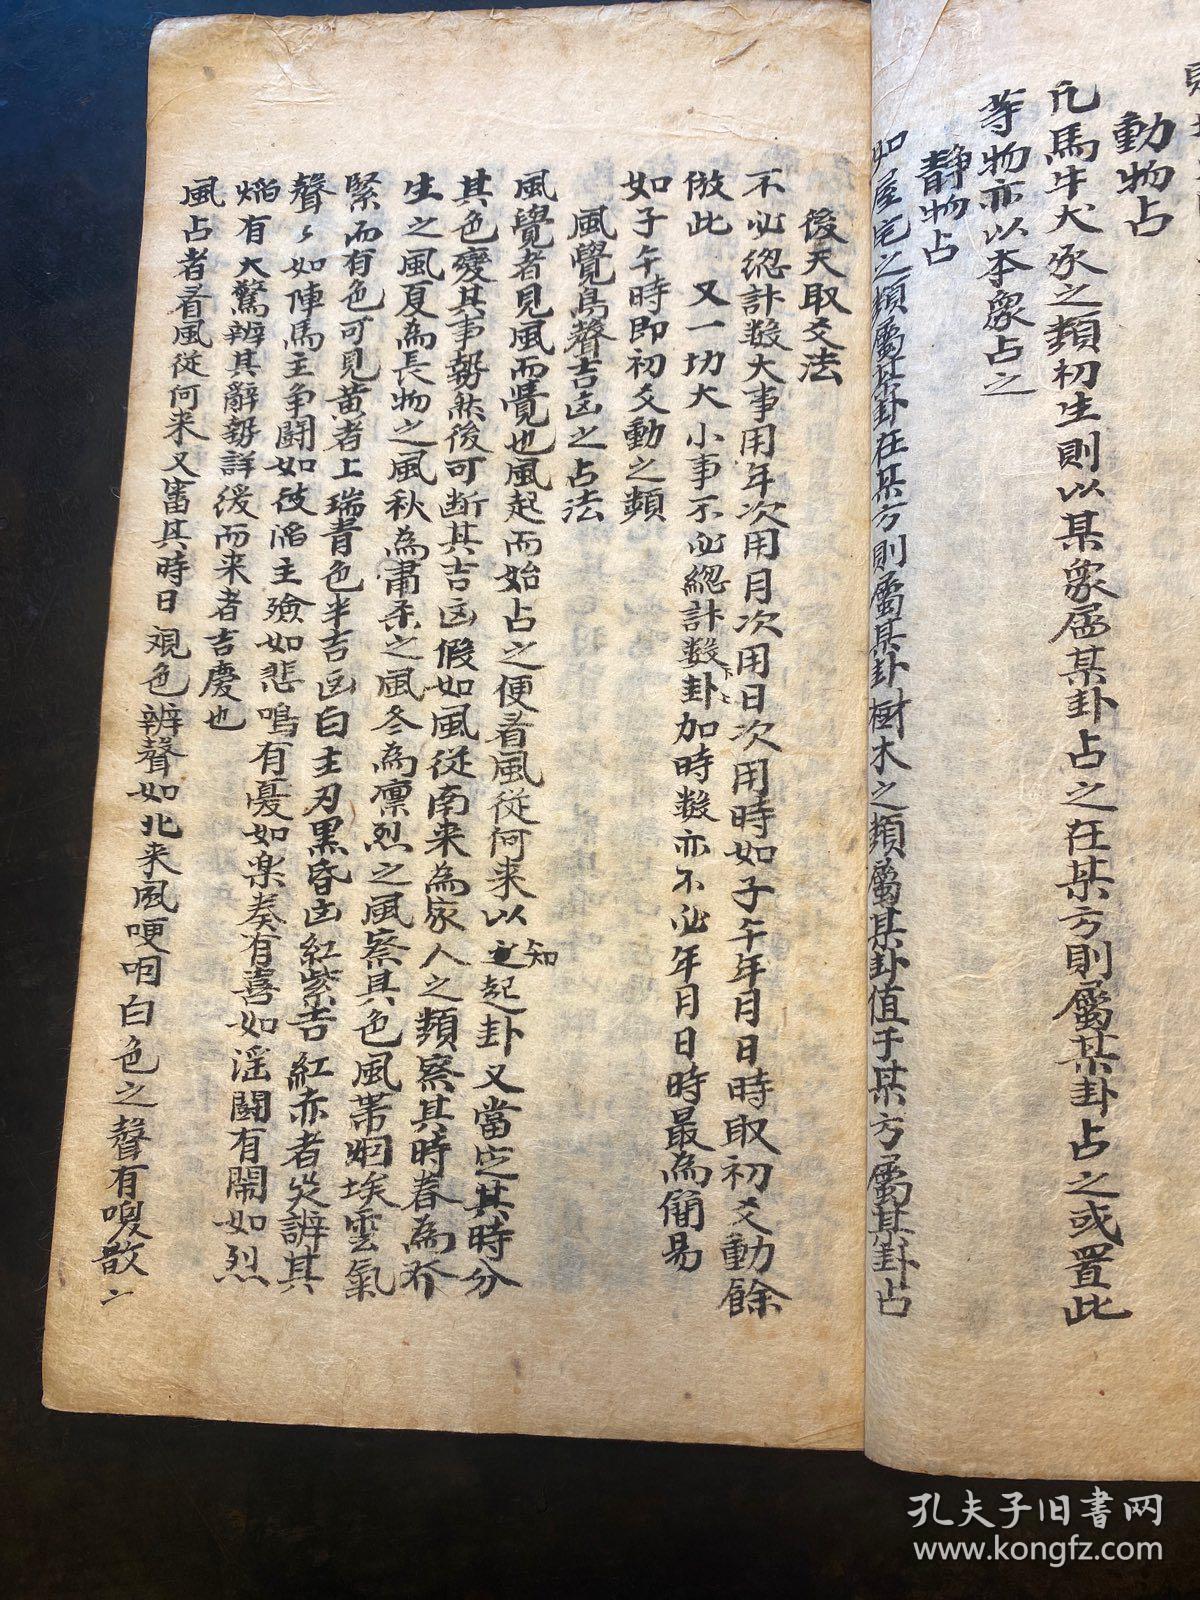 動物占
凡馬牛犬豕之類初生則以某象屬某卦占之在某方則屬某卦占之或置此
等物亦以本象占之
靜物占
如屋宅之類屬某卦在某方則屬某卦樹木之類屬某卦值于某方屬某卦占
後天取爻法
不必緫計数大事用年次用月次用日次用時如子午年月日時取初爻動餘
倣此 又一切大小事不必緫計数卦下上加時数亦不必年月日時最為簡易
如子午時即初爻動之類
風覺鳥聲吉凶之占法
風覺者見風而覺也風起而始占之便看風從何来以之起卦又當知定其時分
其色變其事勢然後可断其吉凶假如風從南来為家人之類察其時春為發
生之風夏為長物之風秋為肅殺之風冬為凛烈之風察其色風帯烟埃雲氣
緊而有色可見黄者上瑞青色半吉凶白主刃黒昏凶紅紫吉紅赤者災辨其
聲々如陣馬主争闘如波濤主險如悲鳴有憂如楽奏有喜如滛闘有鬧如烈
焰有大驚辨其辭勢詳缓而来者吉慶也
風占者看風從何来又審其時日覌色辨聲如北来風哽咽白色之聲有
孔夫子旧书网
www.kongfz.com